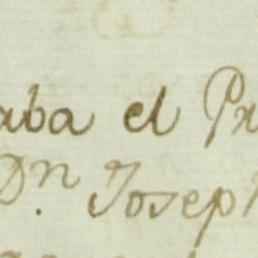 aba el Pr
Dn. Joseph